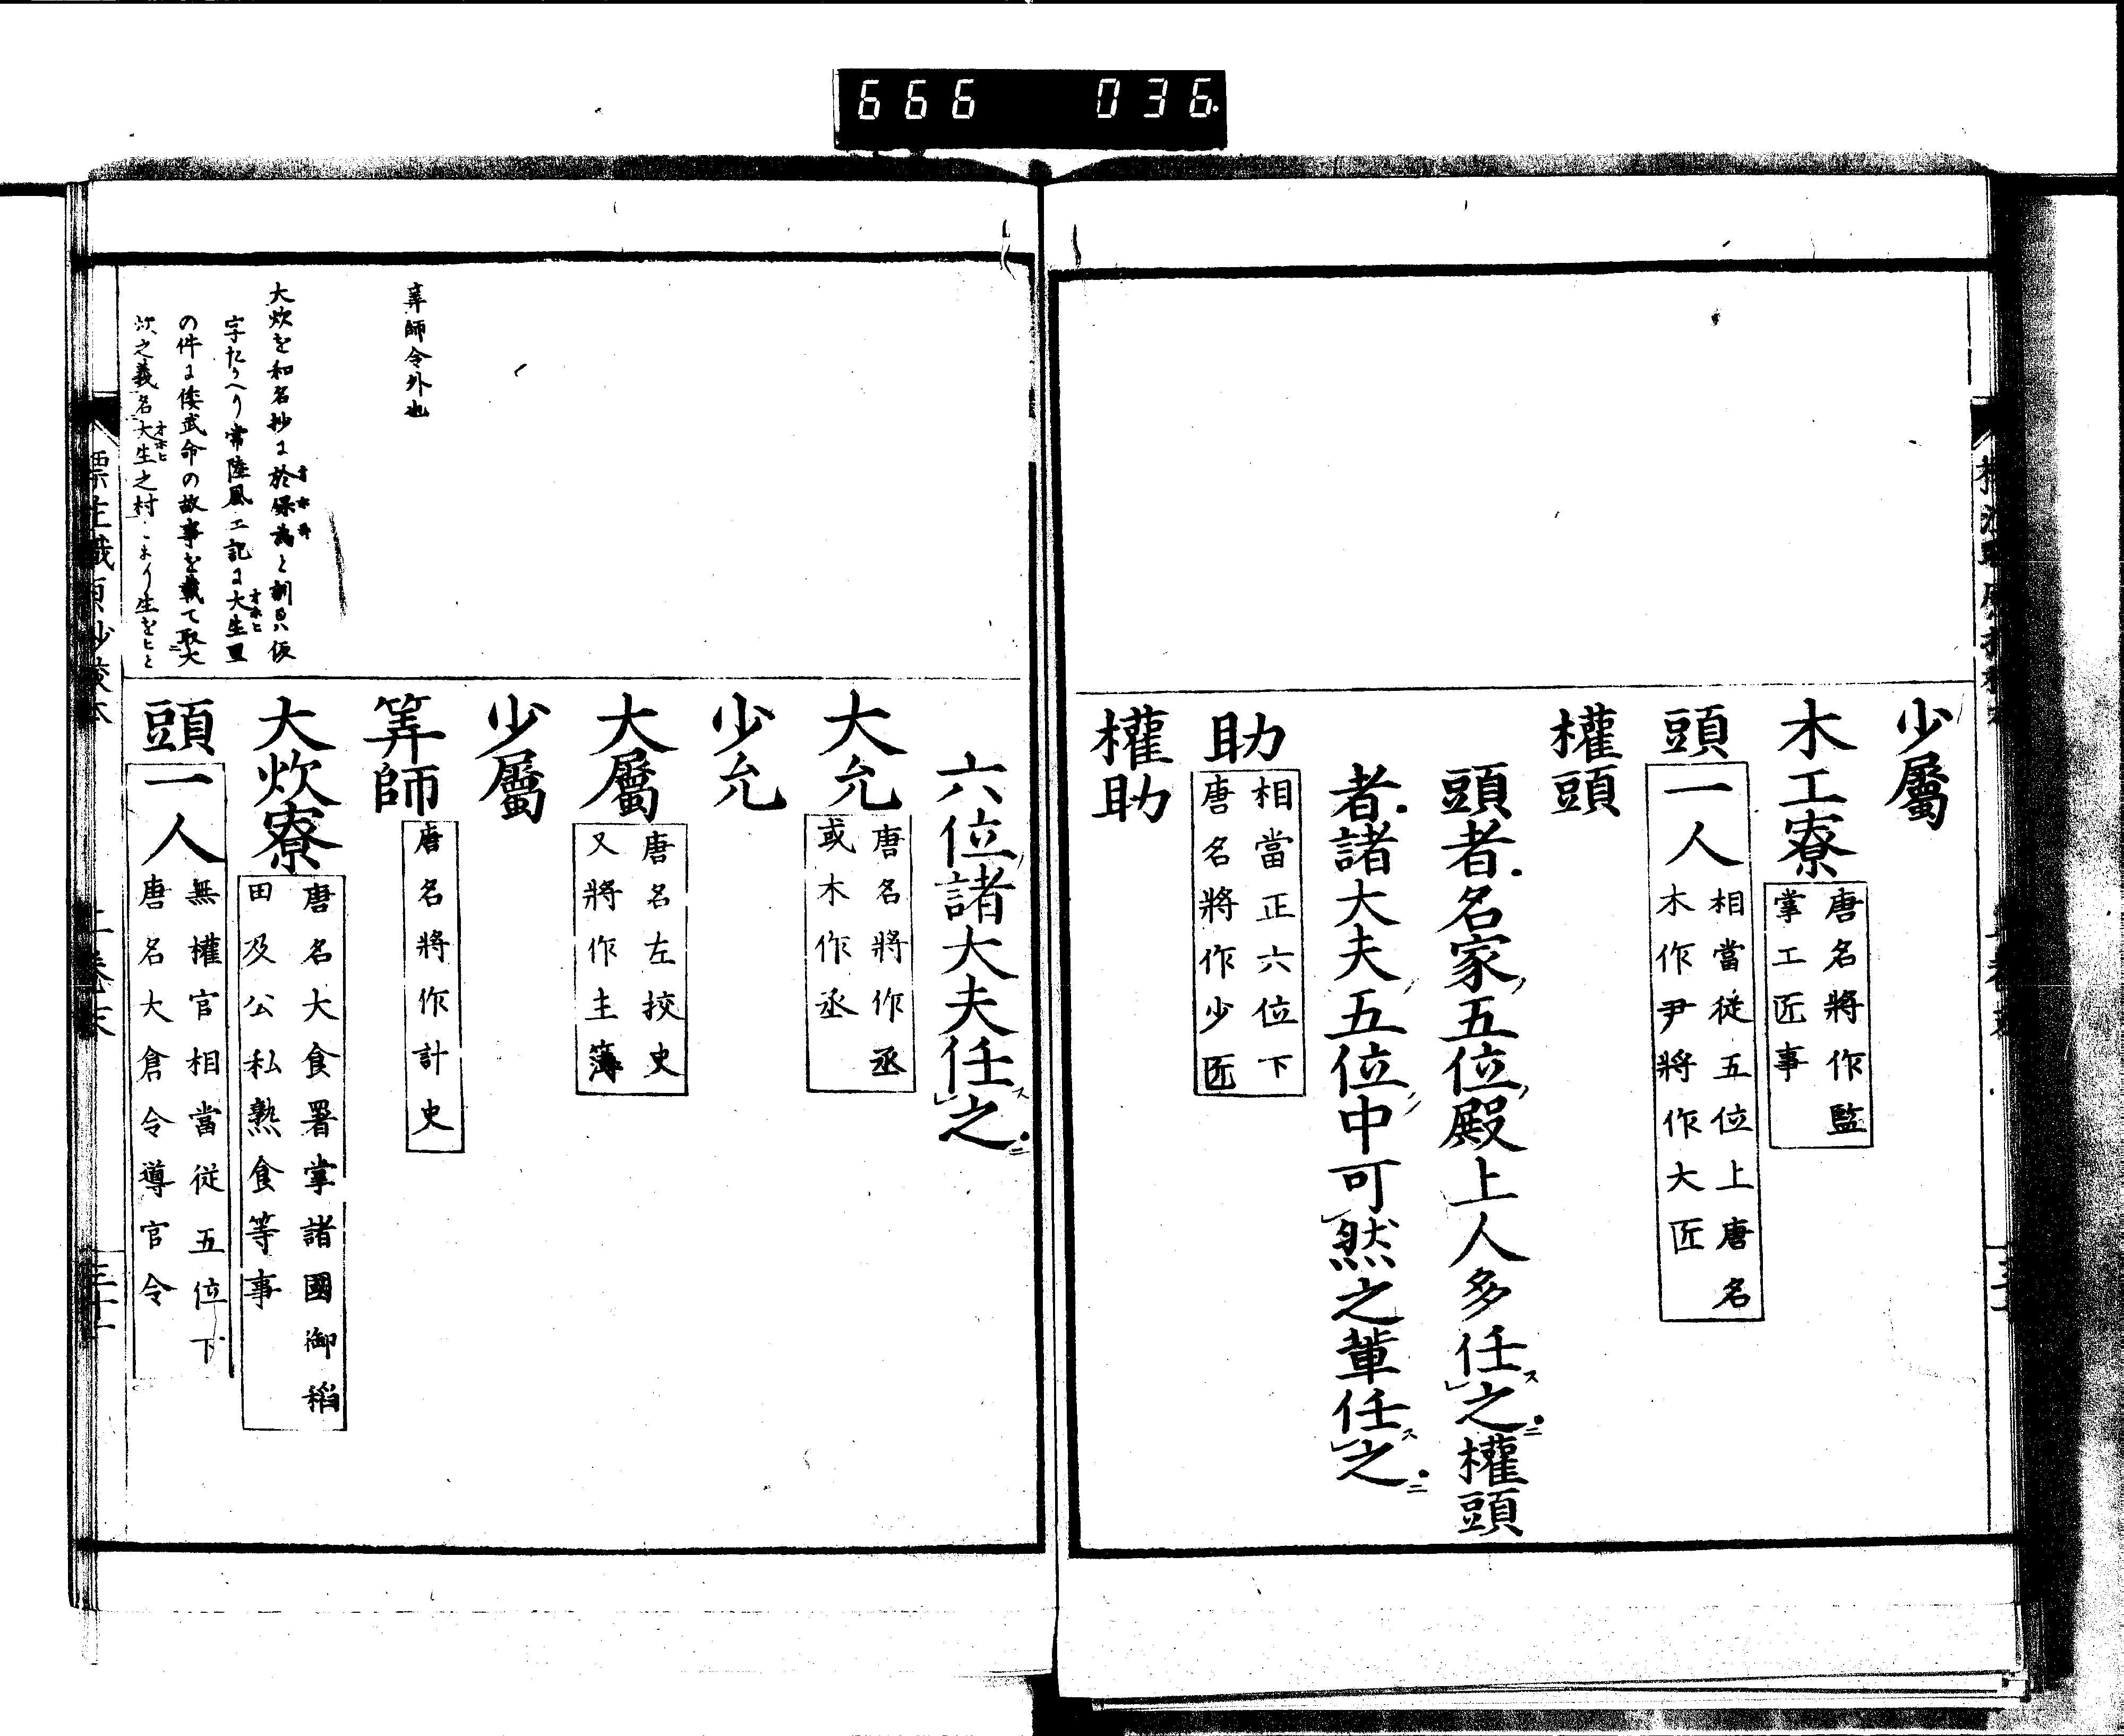 666 036
少屬
木工寮 唐名將作監
掌工匠事
頭一人 相當従五位上唐名
木作尹將作大匠
權頭
頭者名家五位殿上人多任之權頭
者諸大夫五位中可然之輩任之
助 相當正六位下
唐名將作少匠
權助
六位諸大夫任之
大允 唐名將作丞
或木作丞
少允
大屬 唐名左挍史
又將作主簿
少屬
筭師 唐名將作計史
大炊寮 唐名大食署掌諸國御稻
田及公私熟食等事
頭一人 無權官相當従五位下
唐名大倉令導官令
筭師令外也
大炊を和名抄に於保為と訓具仮
字たかへり常陸風土記に大生里
の件に倭武命の故事を載て取大
炊之義名大生之村とあり生をヒと
標注職原抄校本
上卷末